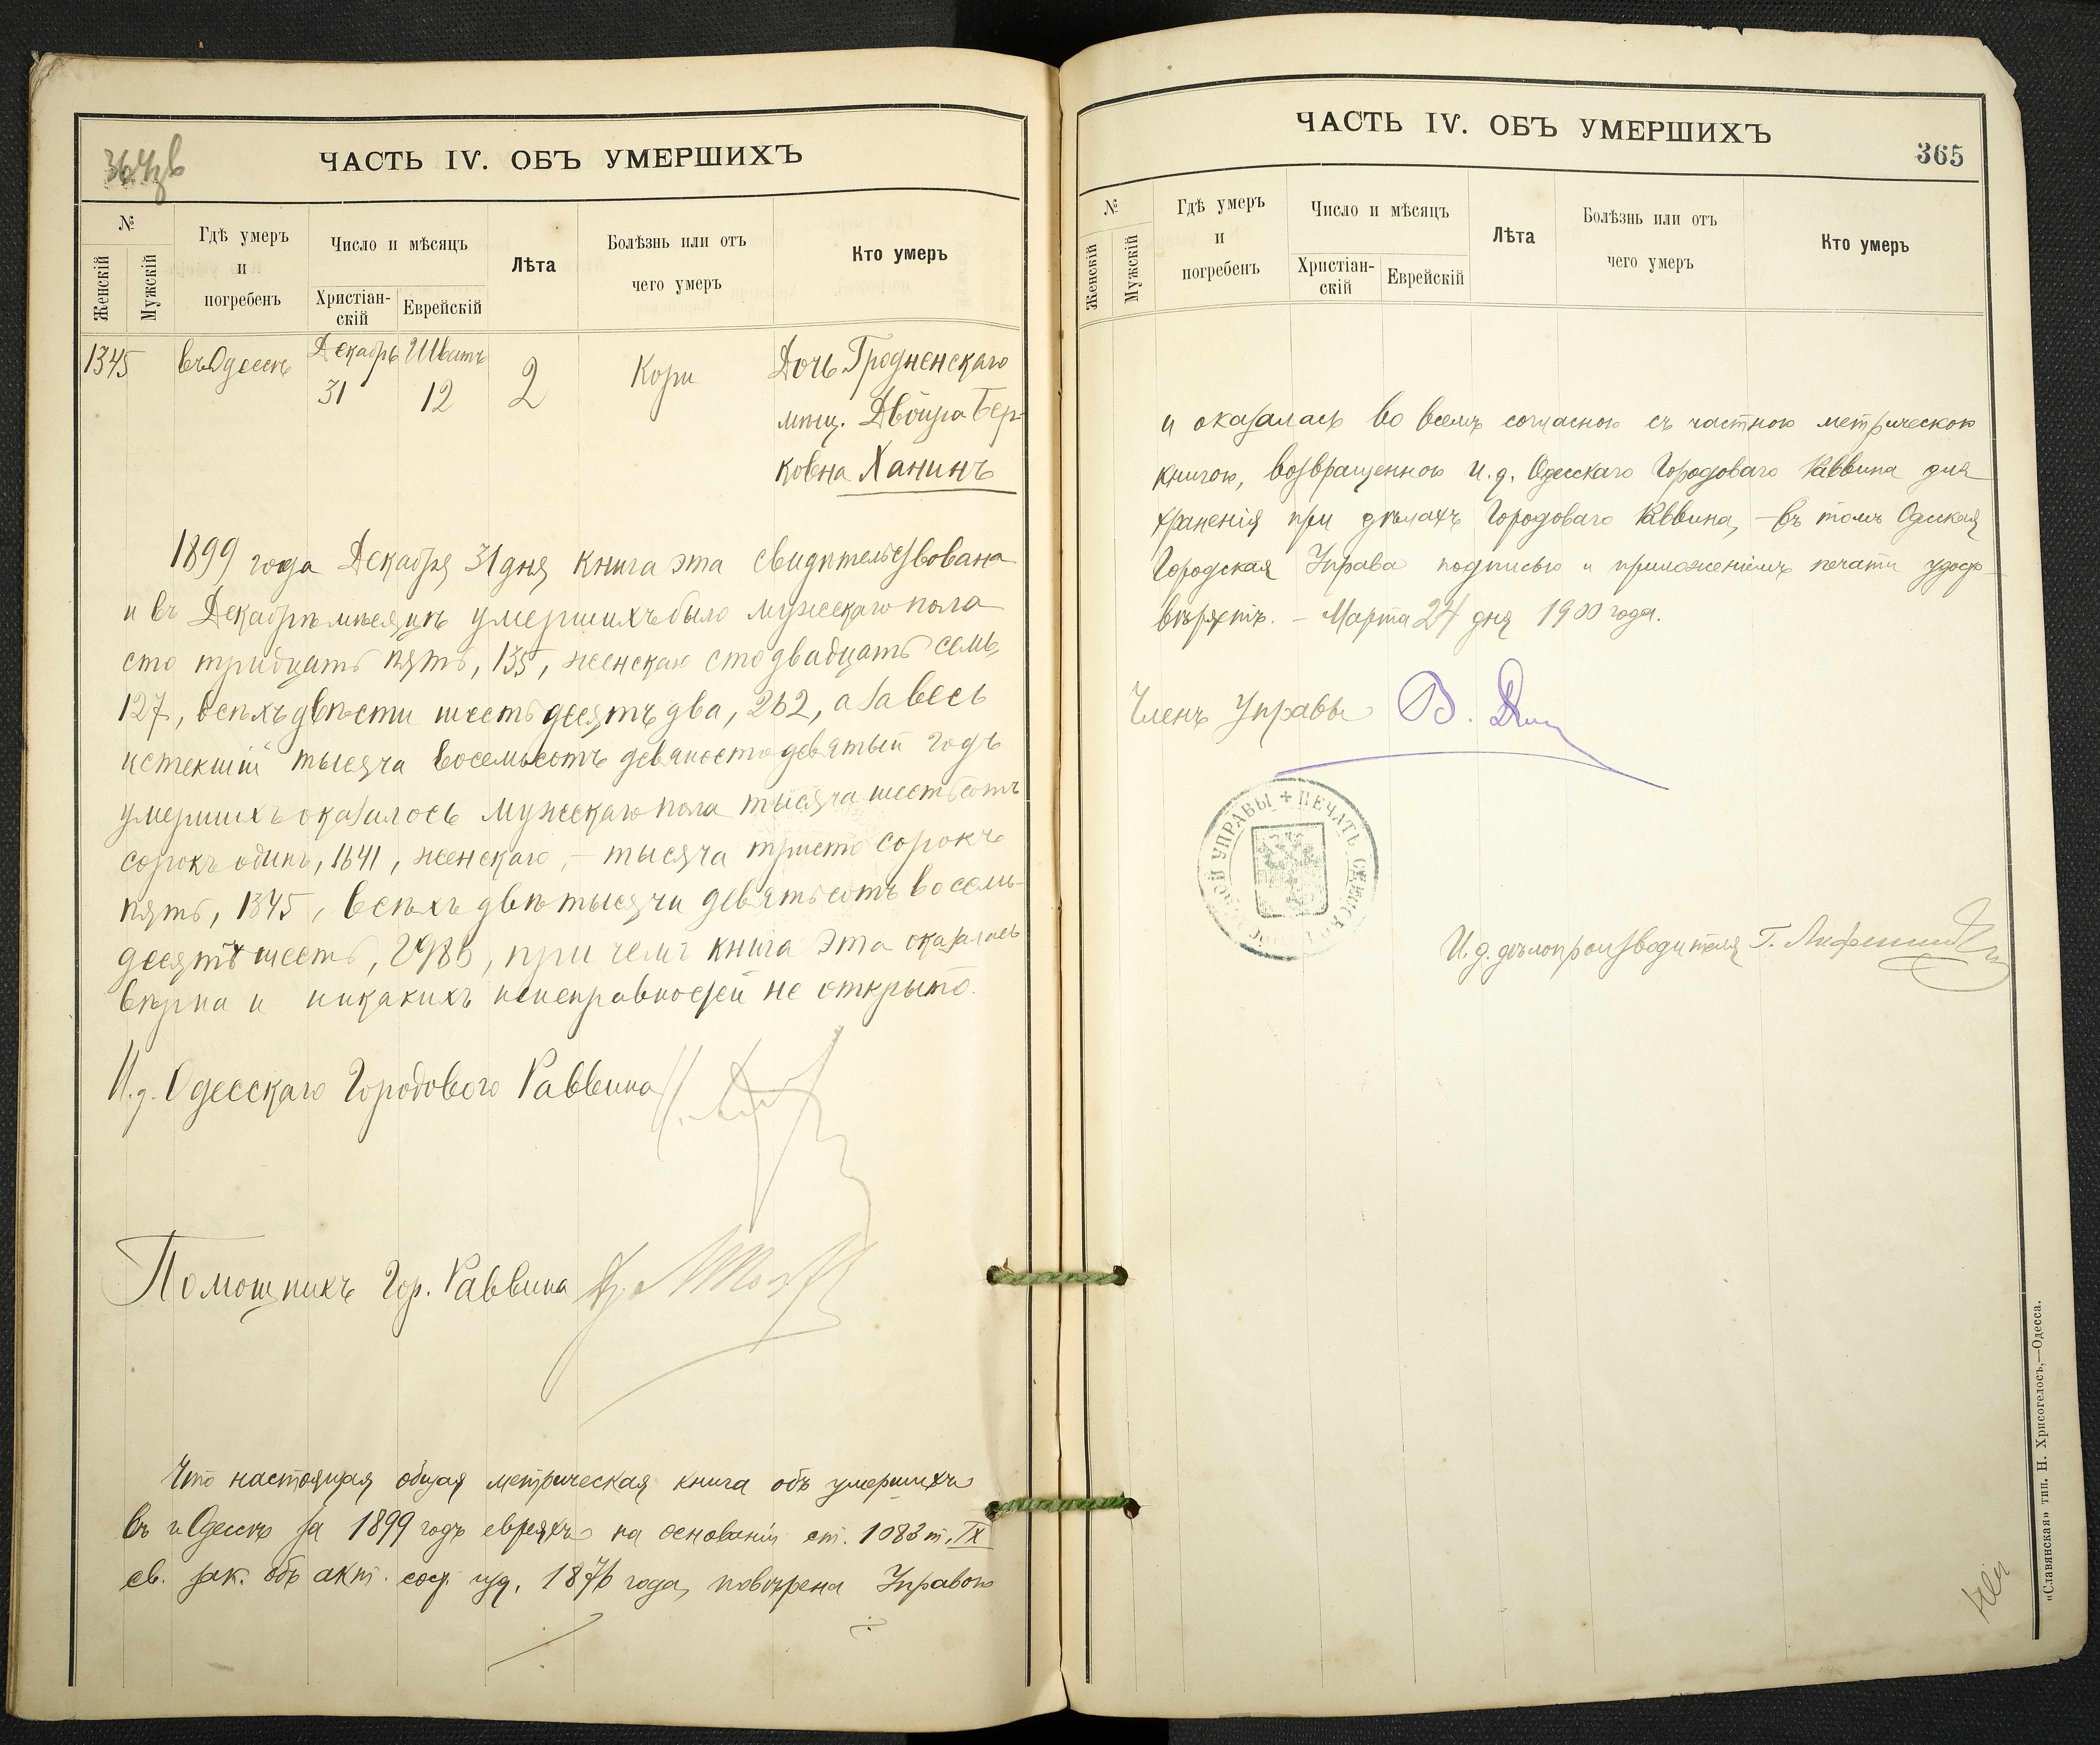 364 об
ЧАСТЬ IV. ОБЪ УМЕРШИХЪ
№
Женскій
Мужскій
Гдѣ умеръ
и
погребенъ
Число и мѣсяцъ
Христіан-
скій
Еврейскій
Лѣта
Болѣзнь или отъ
чего умеръ
Кто умеръ
1345
въ Одессѣ
Декабрь
31
Шватъ
12
2
Кори
Дочь Гродненскаго
мѣщ. Двойра Бер-
ковна Ханинъ
1899 года Декабря 31 дня книга эта свидѣтельствована
и въ Декабрѣ мѣсяцѣ умершихъ было мужескаго пола
сто тридцать пять, 135, женскаго сто двадцать семь,
127, всѣхъ двѣсти шестьдесятъ два, 262, а за весь
истекшій тысяча восемьсотъ девяносто девятый годъ
умершихъ оказалось мужескаго пола тысяча шестьсотъ
сорокъ одинъ, 1641, женскаго, – тысяча триста сорокъ
пять, 1345, всѣхъ двѣ тысячи девятьсотъ восемь-
десятъ шесть, 2986, при чемъ книга эта оказалась
вѣрна и никакихъ неисправностей не открыто.
И. д. Одесскаго Городового Раввина
Помощникъ Гор. Раввина
Что настоящая общая метрическая книга объ умершихъ
въ г. Одессѣ за 1899 годъ евреяхъ на основаніи ст. 1083 т. IX
св. зак. объ акт. сост. изд. 1876 года, повѣрена Управою
ЧАСТЬ IV. ОБЪ УМЕРШИХЪ
365
№
Женскій
Мужскій
Гдѣ умеръ
и
погребенъ
Число и мѣсяцъ
Христіан-
скій
Еврейскій
Лѣта
Болѣзнь или отъ
чего умеръ
Кто умеръ
и оказалась во всемъ согласною съ частною метрическою
книгою, возвращенною и. д. Одесскаго Городоваго Раввина для
храненія при дѣлахъ Городоваго Раввина, – въ томъ Одесская
Городская Управа подписью и приложеніемъ печати удосто-
вѣряетъ. – Марта 24 дня 1900 года.
Членъ Управы В.
ПЕЧАТЬ ОДЕССКОЙ ГОРОДСКОЙ УПРАВЫ
И. д. дѣлопроизводителя Г.
«Славянская» тип. Н. Хрисогелосъ,—Одесса.